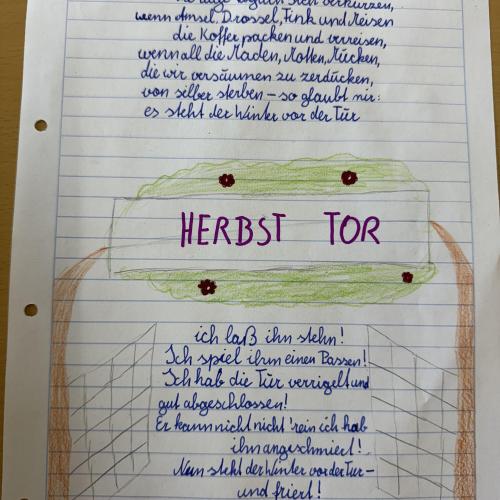 die Tage täglich sich verkürzen,
wenn Amsel, Drossel, Fink und Meisen
die Koffer packen und verreisen,
wenn all die Maden, Motten, Mücken,
die wir versäumen zu zerdücken,
von silber sterben – so glaubt mir:
es steht der Winter vor der Tür
HERBST TOR
ich laß ihn stehn!
Ich spiel ihm einen Possen!
Ich hab die Tür verrigelt und
gut abgeschlossen!
Er kann nicht nicht 'rein ich hab
ihn angeschmiert!
Nun steht der Winter vor der Tür –
und friert!